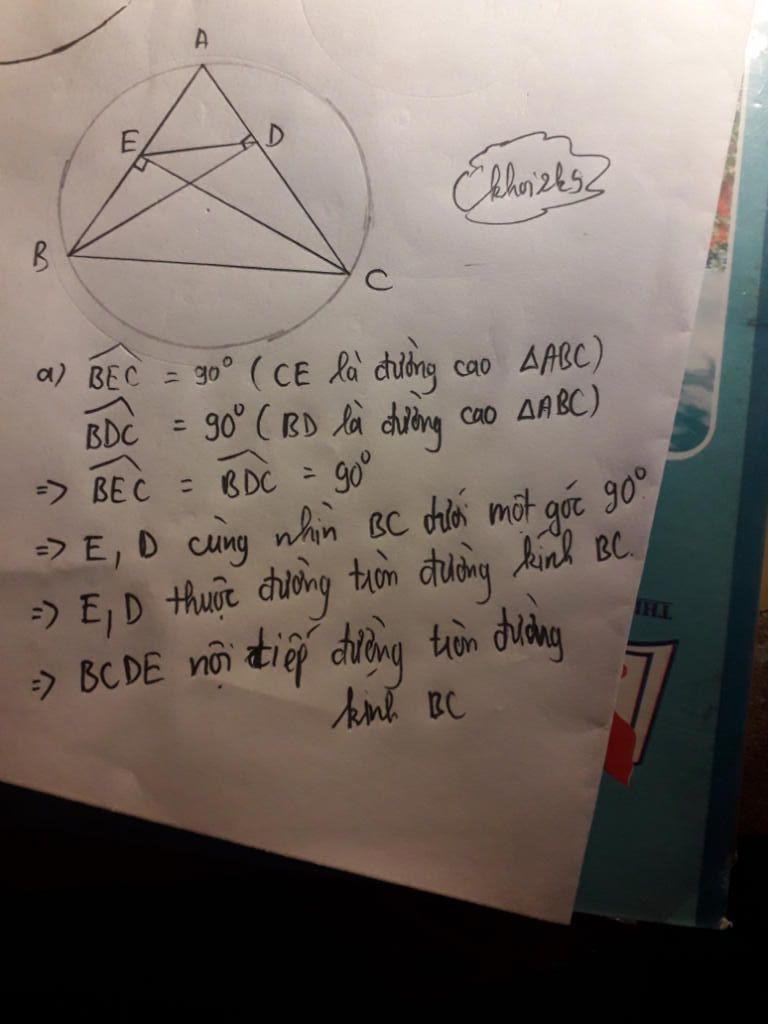 A
E
D
B
C
khoi2k9
a) BEC = 90° (CE là đường cao ΔABC)
BDC = 90° (BD là đường cao ΔABC)
=> BEC = BDC = 90°
=> E, D cùng nhìn BC dưới một góc 90°
=> E, D thuộc đường tròn đường kính BC.
=> BCDE nội tiếp đường tròn đường
kính BC